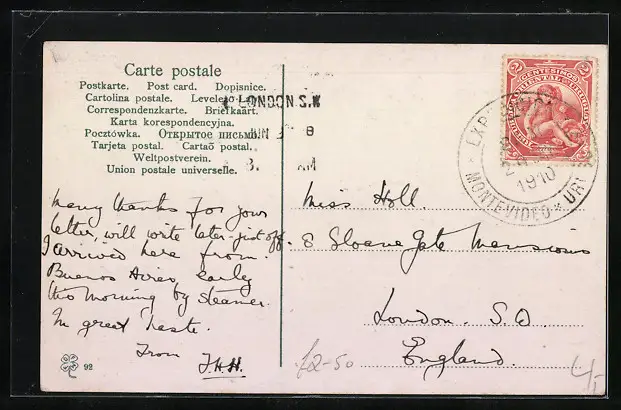 Carte postale
Postkarte. Post card. Dopisnice.
Cartolina postale.
Correspondenzkarte. Briefkaart.
Karta korespondencyjna.
Pocztówka. Открытое письмо.
Tarjeta postal. Cartaõ postal.
Weltpostverein.
Union postale universelle.
LONDON S.W
Many thanks for your
letter, will write later - just off.
I arrived here from
Buenos Aires early
this morning by steamer.
In great haste.
From J.H.H.
92
2 CENTESIMOS 2
MONTEVIDEO * URU
1910
Miss Holl.
8 Sloane Gate Mansions
London. S.O.
England.
£2-50
4/-